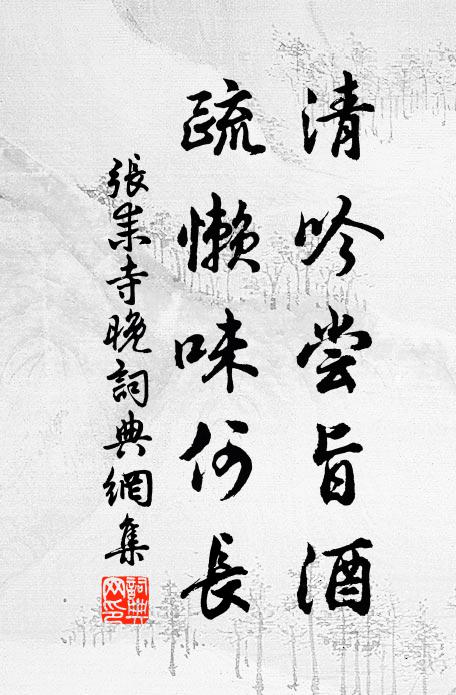 清吟尝旨酒
疏懶味何長
張耒寺晚詞典網集